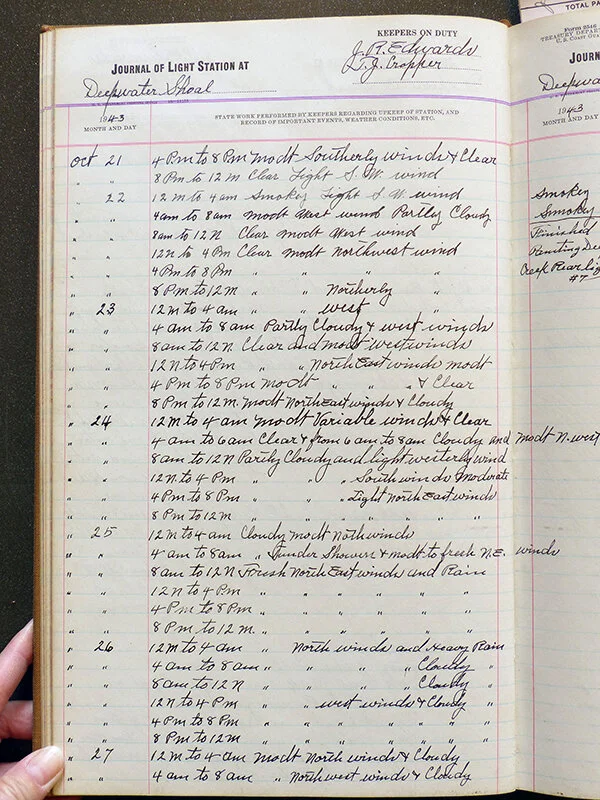 KEEPERS ON DUTY
J. R. Edwards
JOURNAL OF LIGHT STATION AT
J. Cropper
Deepwater Shoal
1943
MONTH AND DAY
STATE WORK PERFORMED BY KEEPERS REGARDING UPKEEP OF STATION, AND
RECORD OF IMPORTANT EVENTS, WEATHER CONDITIONS, ETC.
Oct 21 4 Pm to 8 Pm modt Southerly winds & Clear
" " 8 Pm to 12 M Clear Light S. W. wind
" 22 12 M to 4 am Smokey Light S. W. wind
" " 4 am to 8 am modt West wind Partly Cloudy
" " 8 am to 12 N Clear modt West wind
" " 12 N to 4 Pm Clear modt Northwest wind
" " 4 Pm to 8 Pm " " " "
" " 8 Pm to 12 M " " Northerly "
" 23 12 M to 4 am " " West "
" " 4 am to 8 am Partly Cloudy & west winds
" " 8 am to 12 N Clear and modt west winds
" " 12 N to 4 Pm " " North East winds modt
" " 4 Pm to 8 Pm modt " " " & Clear
" " 8 Pm to 12 M. modt North East winds & Cloudy
" 24 12 M to 4 am modt Variable winds & Clear
" " 4 am to 6 am Clear & from 6 am to 8 am Cloudy and modt N. west
" " 8 am to 12 N Partly Cloudy and light westerly wind
" " 12 N. to 4 Pm " " " South winds moderate
" " 4 Pm to 8 Pm " " " Light North East winds
" " 8 Pm to 12 M " " " " " " "
" 25 12 M to 4 am Cloudy modt Noth winds
" " 4 am to 8 am " Tunder Showers & modt to fresh N.E. winds
" " 8 am to 12 N Fresh North East winds and Rain
" " 12 N to 4 Pm " " " " "
" " 4 Pm to 8 Pm " " " " "
" " 8 Pm to 12 M. " " " " "
" 26 12 M to 4 am " North winds and Heavy Rain
" " 4 am to 8 am " " " " Cloudy "
" " 8 am to 12 N " " " " Cloudy "
" " 12 N to 4 Pm " " west winds & Cloudy "
" " 4 Pm to 8 Pm " " " " " "
" " 8 Pm to 12 M " " " " " "
" 27 12 M to 4 am modt North winds & Cloudy
" " 4 am to 8 am " North west winds & Cloudy
TOTAL PA
Form 2546
TREASURY DEPAR
U. S. COAST GUA
JOURN
Deepwa
1943
MONTH AND DAY
Smokey
Smokey
Finished
Painting Dee
Creek Rear Lig
#7